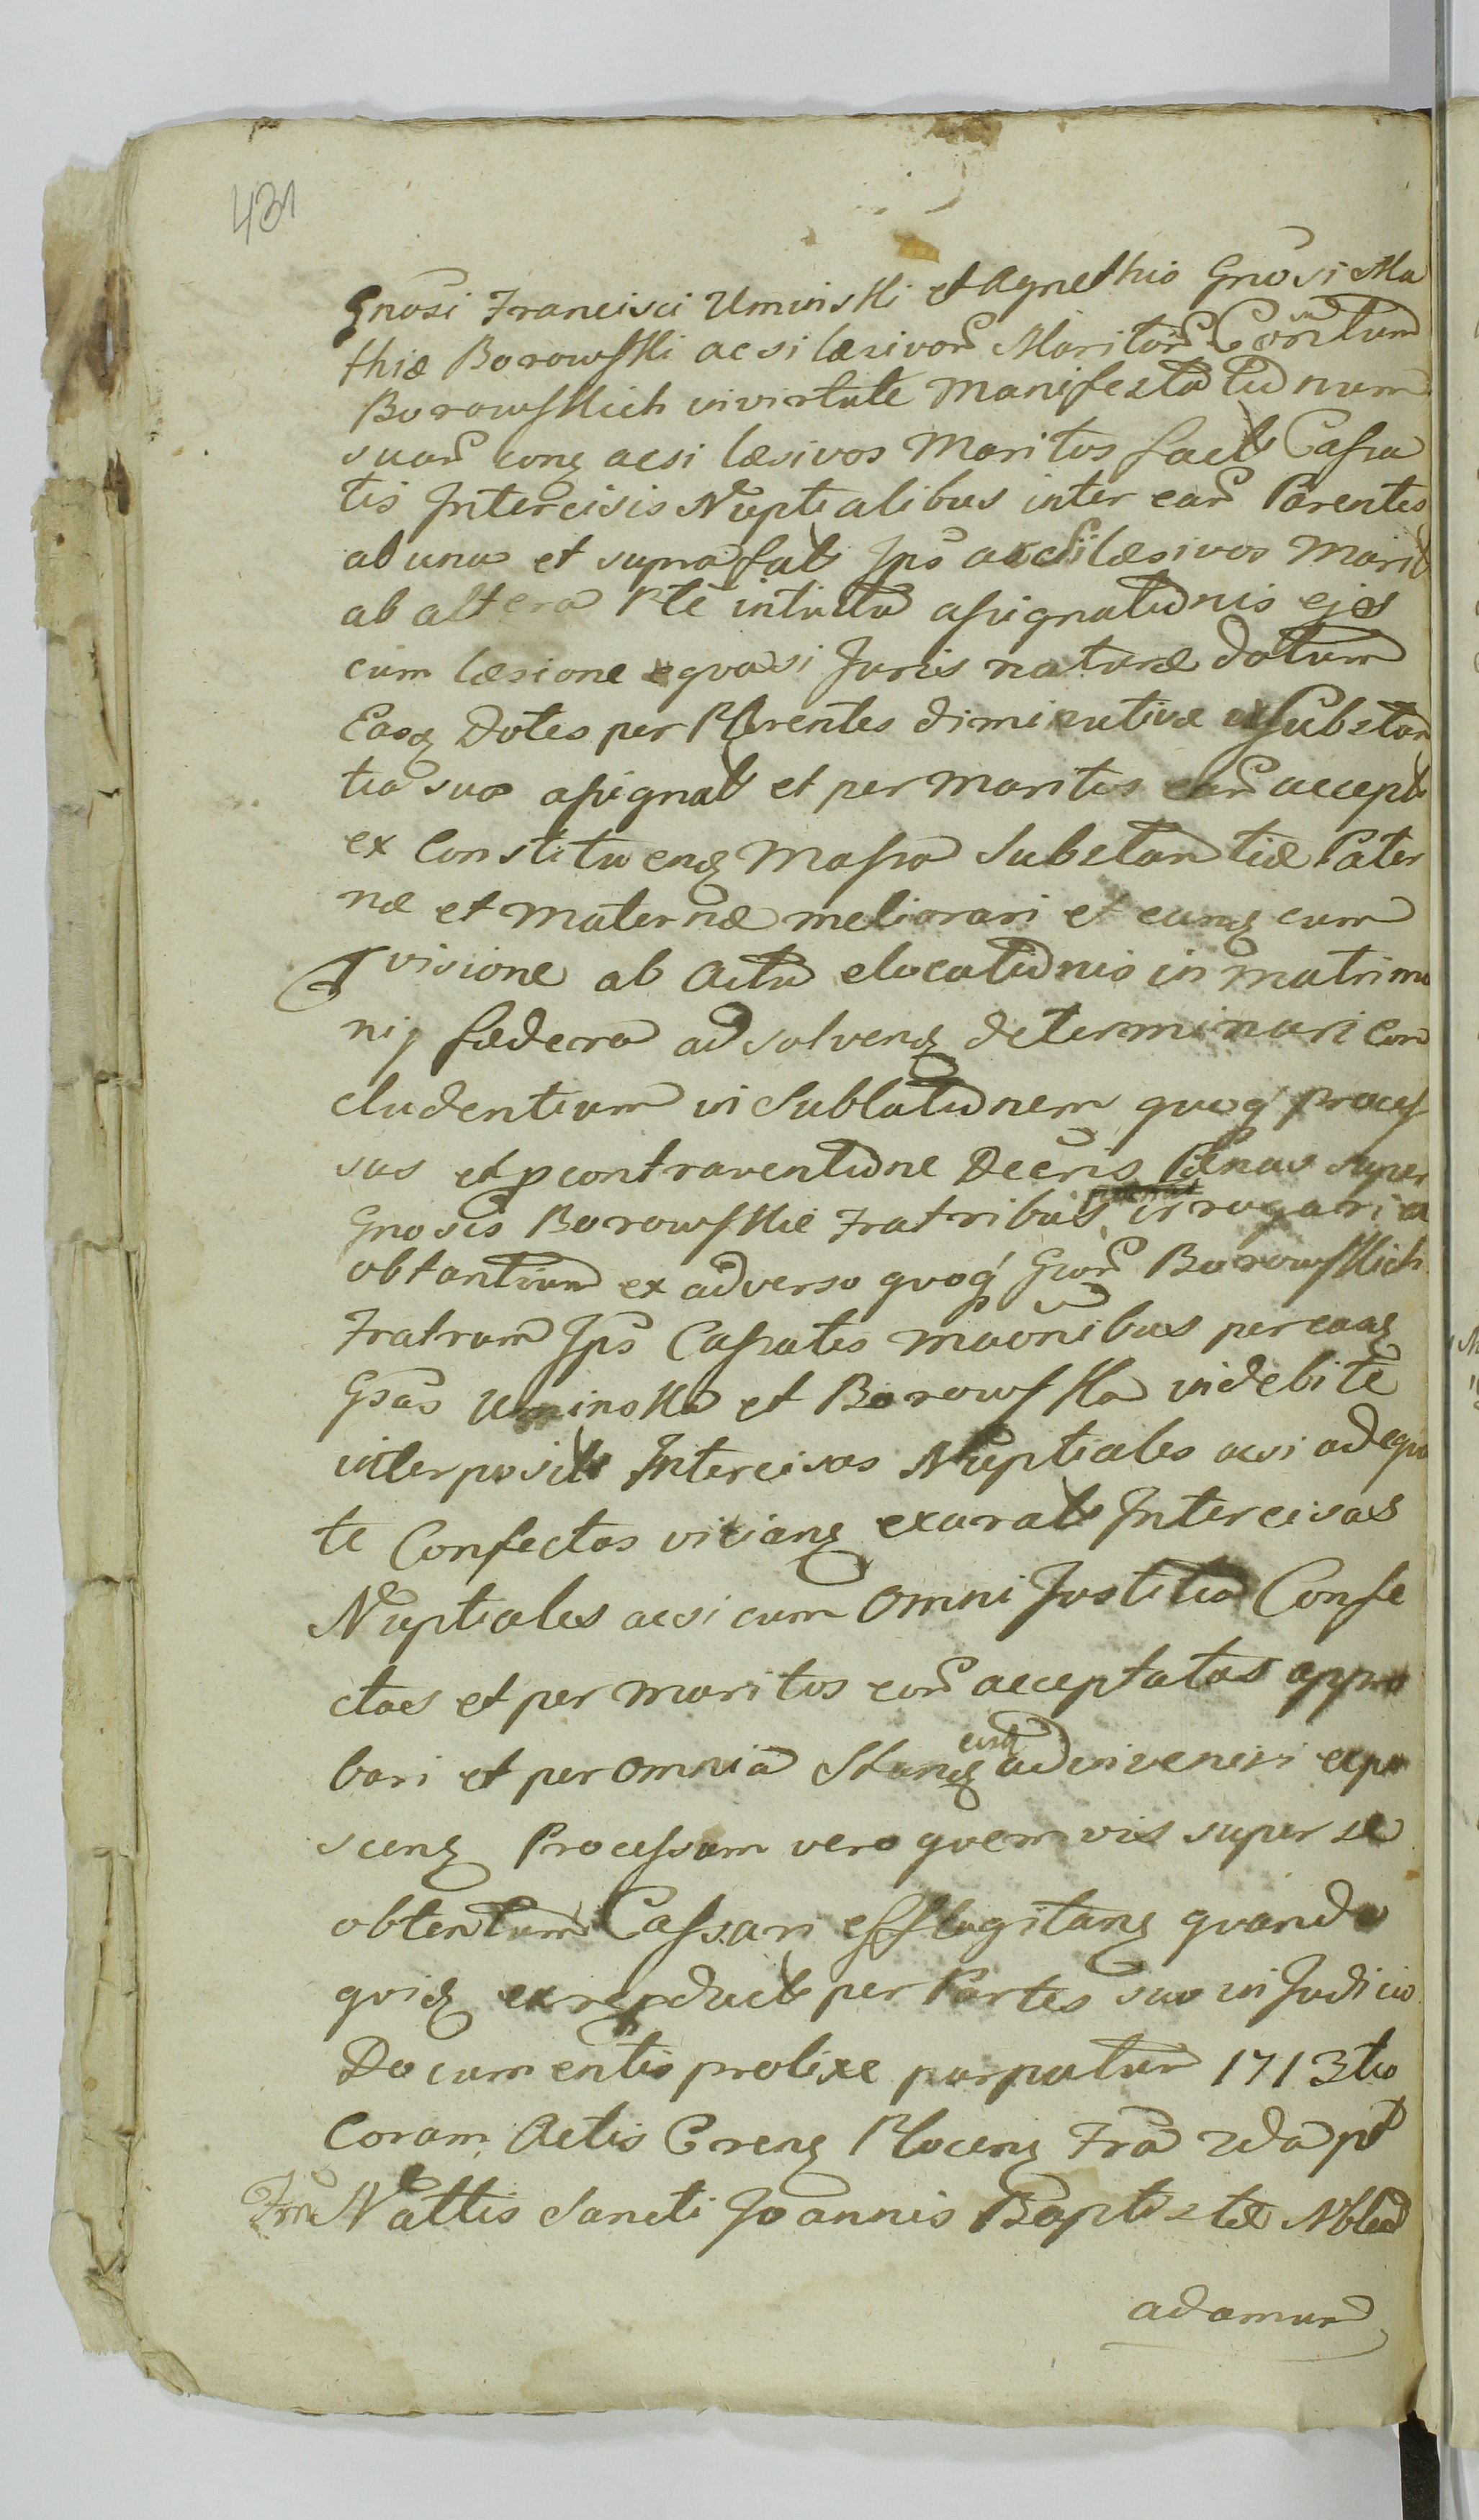 431
Gnosi Francisci Uminski et Agnethis Gnosi Ma
thiæ Borowski ac si læsivor Maritor Consortum
Borowskich in virtute Manifestationum
suar conq acsi læsivos Maritos fact Cassa
tis Intercisis Nuptialibus inter ear Parentes
ab una et suprafat Ips acsi læsivos Marit
ab altera Pte intuitu assignationis ejs
cum læsione quasi Juris naturæ dotum
Easq Dotes per Parentes diminutivæ ex Substan
tia sua assignat et per Maritos ear accept
ex Constituenq Massa Substantiæ Pater
næ et Maternæ meliorari et eamq cum
visione ab Actu elocationis in matrimo
nij fædera ad solvenq determinari con
cludentium in Sublationem quoq proces
sus et p contraventione Decris Pænas super
Gnosis Borowskie Fratribus irrogari a
obtantium ex adverso quoq Gnor Borowskich
Fratrum Ips Cassatis Maonibus per easq
Gsas Uminska et Borowska indebite
interposit Intercisas Nuptiales acsi adequa
te Confectas vicianq exarat Intercisas
Nuptiales acsi cum Omni Justitia Confe
ctas et per maritos ear acceptatas appro
bari et per omnia Stanq eisq adinveniri expo
scenq Processum vero quemvis super se
obtentum Cassari efflagitanq quando
quidq ex reproduct per Partes suo in Judicio
Documentis prolixe parpatur 1713tio
Coram Actis Crenq Plocenq Fra 2da pt
Fm Nattis Sancti Joannis Baptistæ Nbled
adamus